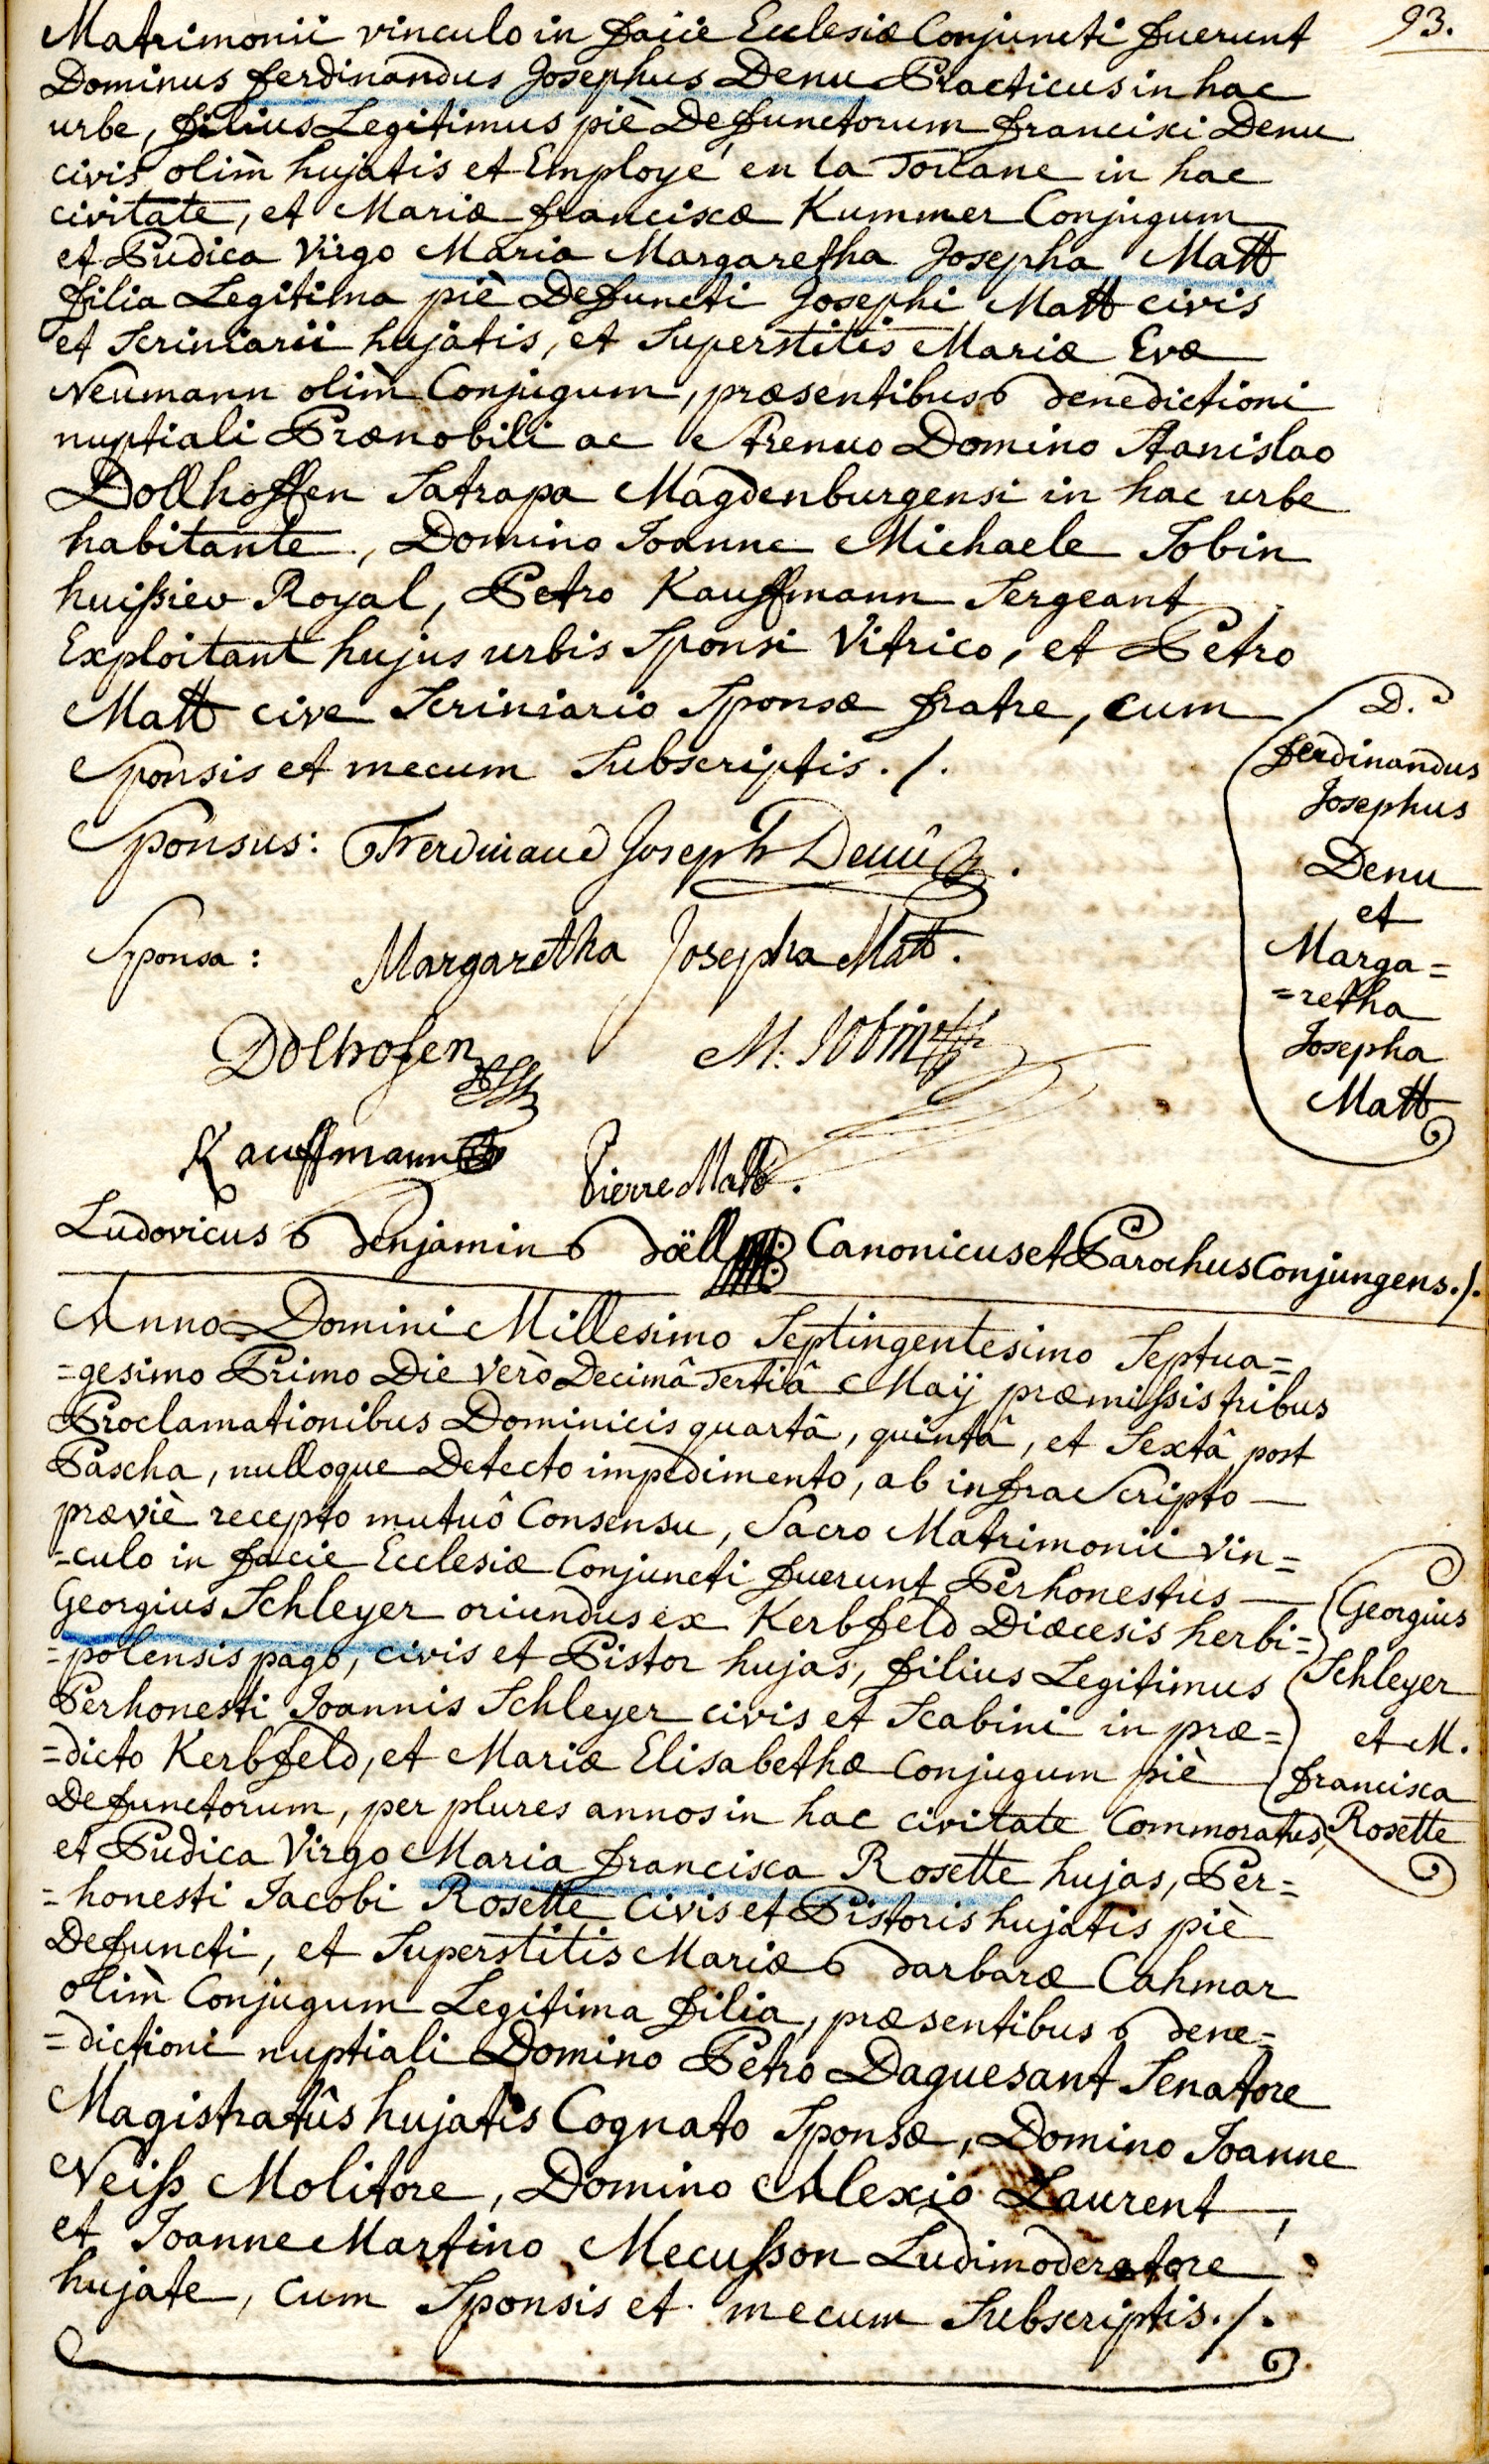 93.
Matrimonii vinculo in facie Ecclesiæ Conjuncti fuerunt
Dominus ferdinandus Josephus Denu Practicus in hac
urbe, filius Legitimus piè Defunctorum francisci Denu
civis olim hujatis et Employé en la Torcane in hac
civitate, et Mariæ franciscæ Kummer Conjugum
et Pudica Virgo Maria Margaretha Josepha Matt
filia Legitima piè Defuncti Josephi Matt civis
et Scriniarii hujatis, et Superstitis Mariæ Evæ
Neumann olim Conjugum, præsentibus benedictioni
nuptiali Prænobili ac Strenuo Domino Stanislao
Dollhoffen Satrapa Magdenburgensi in hac urbe
habitante, Domino Joanne Michaele Jobin
huissier Royal, Petro Kauffmann Sergeant
Exploitant hujus urbis Sponsi Vitrico, et Petro
Matt cive Scriniario Sponsæ fratre, cum
Sponsis et mecum Subscriptis ./.
D.
ferdinandus
Josephus
Denu
et
Marga=
=retha
Josepha
Matt
Sponsus: Ferdinand Joseph Denu
Sponsa: Margaretha Josepha Matt.
Dolhofen M: Jobin
Kauffmann Pierre Matt.
Ludovicus Benjamin Böell Canonicus et Parochus Conjungens ./.
Anno Domini Millesimo Septingentesimo Septua=
=gesimo Primo Die verò Decimâ Tertiâ Maij præmissis tribus
Proclamationibus Dominicis quartâ, quintâ, et Sextâ post
Pascha, nulloque Detecto impedimento, ab infra Scripto
præviè recepto mutuô Consensu, Sacro Matrimonii vin=
=culo in facie Ecclesiæ Conjuncti fuerunt Perhonestus
Georgius Schleyer oriundus ex Kerbfeld Diœcesis herbi=
=polensis pago, civis et Pistor hujas, filius Legitimus
Perhonesti Joannis Schleyer civis et Scabini in præ=
=dicto Kerbfeld, et Mariæ Elisabethæ Conjugum piè
Defunctorum, per plures annos in hac civitate Commoratus,
et Pudica Virgo Maria francisca Rosette hujas, Per=
=honesti Jacobi Rosette Civis et Pistoris hujatis piè
Defuncti, et Superstitis Mariæ Barbaræ Cahmar
olim Conjugum Legitima filia, præsentibus bene=
=dictioni nuptiali Domino Petro Daguesant Senatore
Magistratûs hujatis Cognato Sponsæ, Domino Joanne
Neiss Molitore, Domino Alexio Laurent,
et Joanne Martino Mecusson Ludimoderatore
hujate, Cum Sponsis et mecum Subscriptis ./.
Georgius
Schleyer
et M.
francisca
Rosette